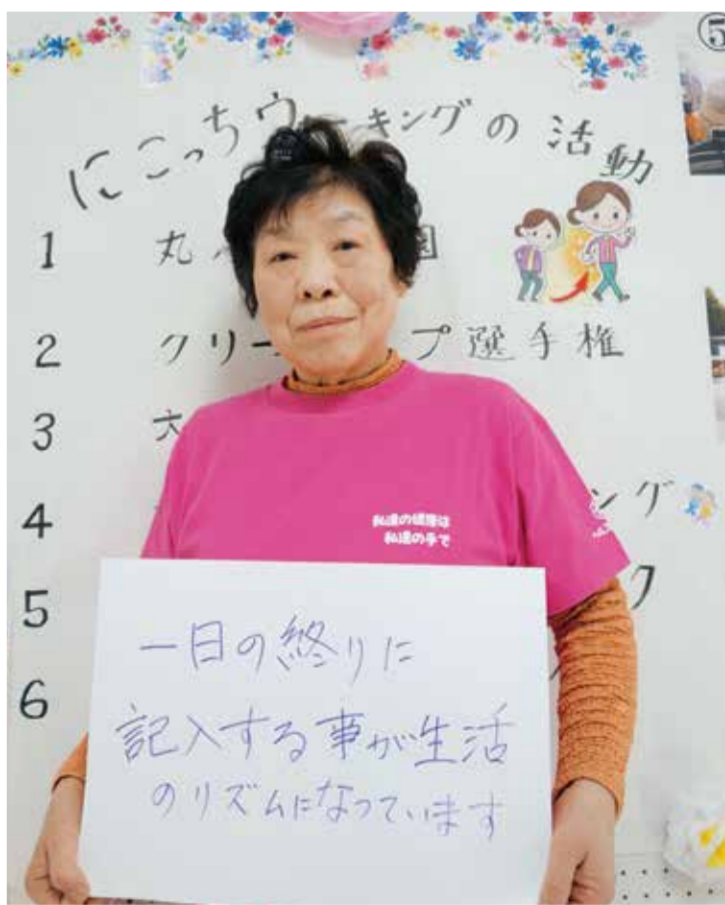 ⑤
にこっちウーキングの活動
1 丸 園
2 クリー プ選手権
3 六
4 ング
5 ク
6
私達の健康は
私達の手で
一日の終りに
記入する事が生活
のリズムになっています